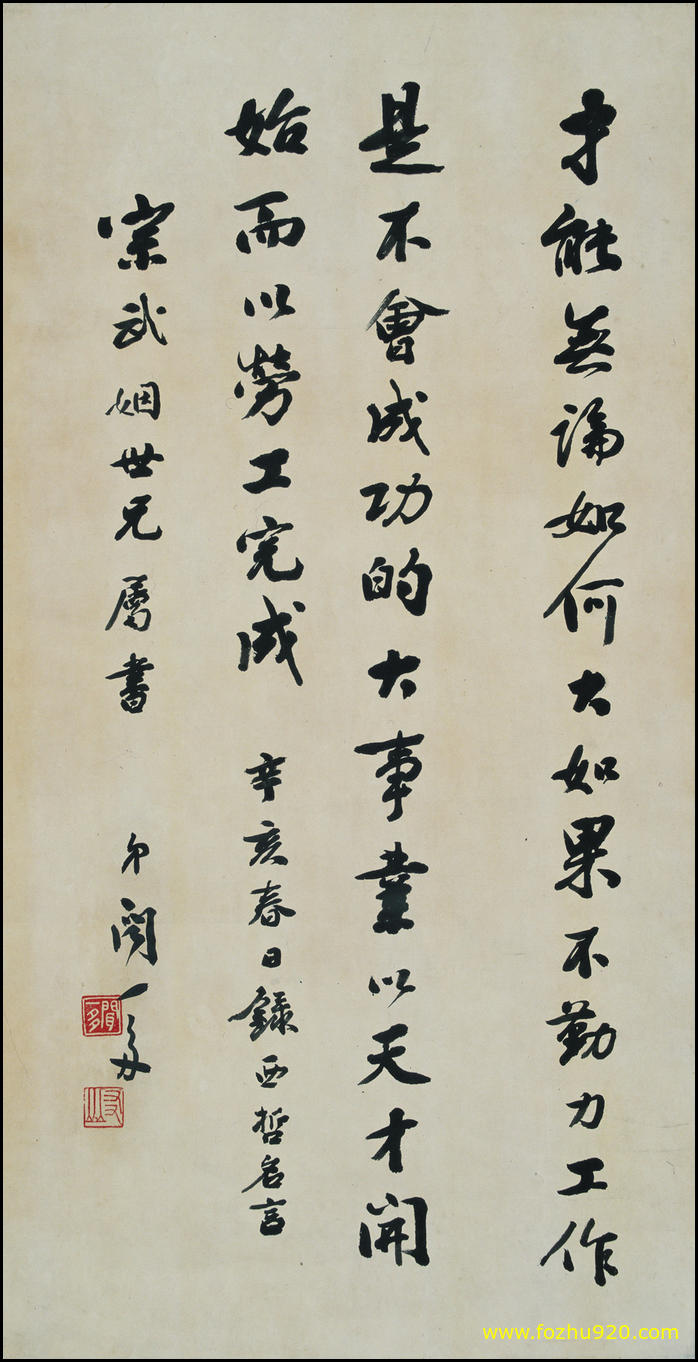 才能無論如何大如果不勤力工作
是不會成功的大事業以天才開
始而以勞工完成 辛亥春日錄西哲名言
武姻世兄屬書 弟聞一多
www.fozhu920.com